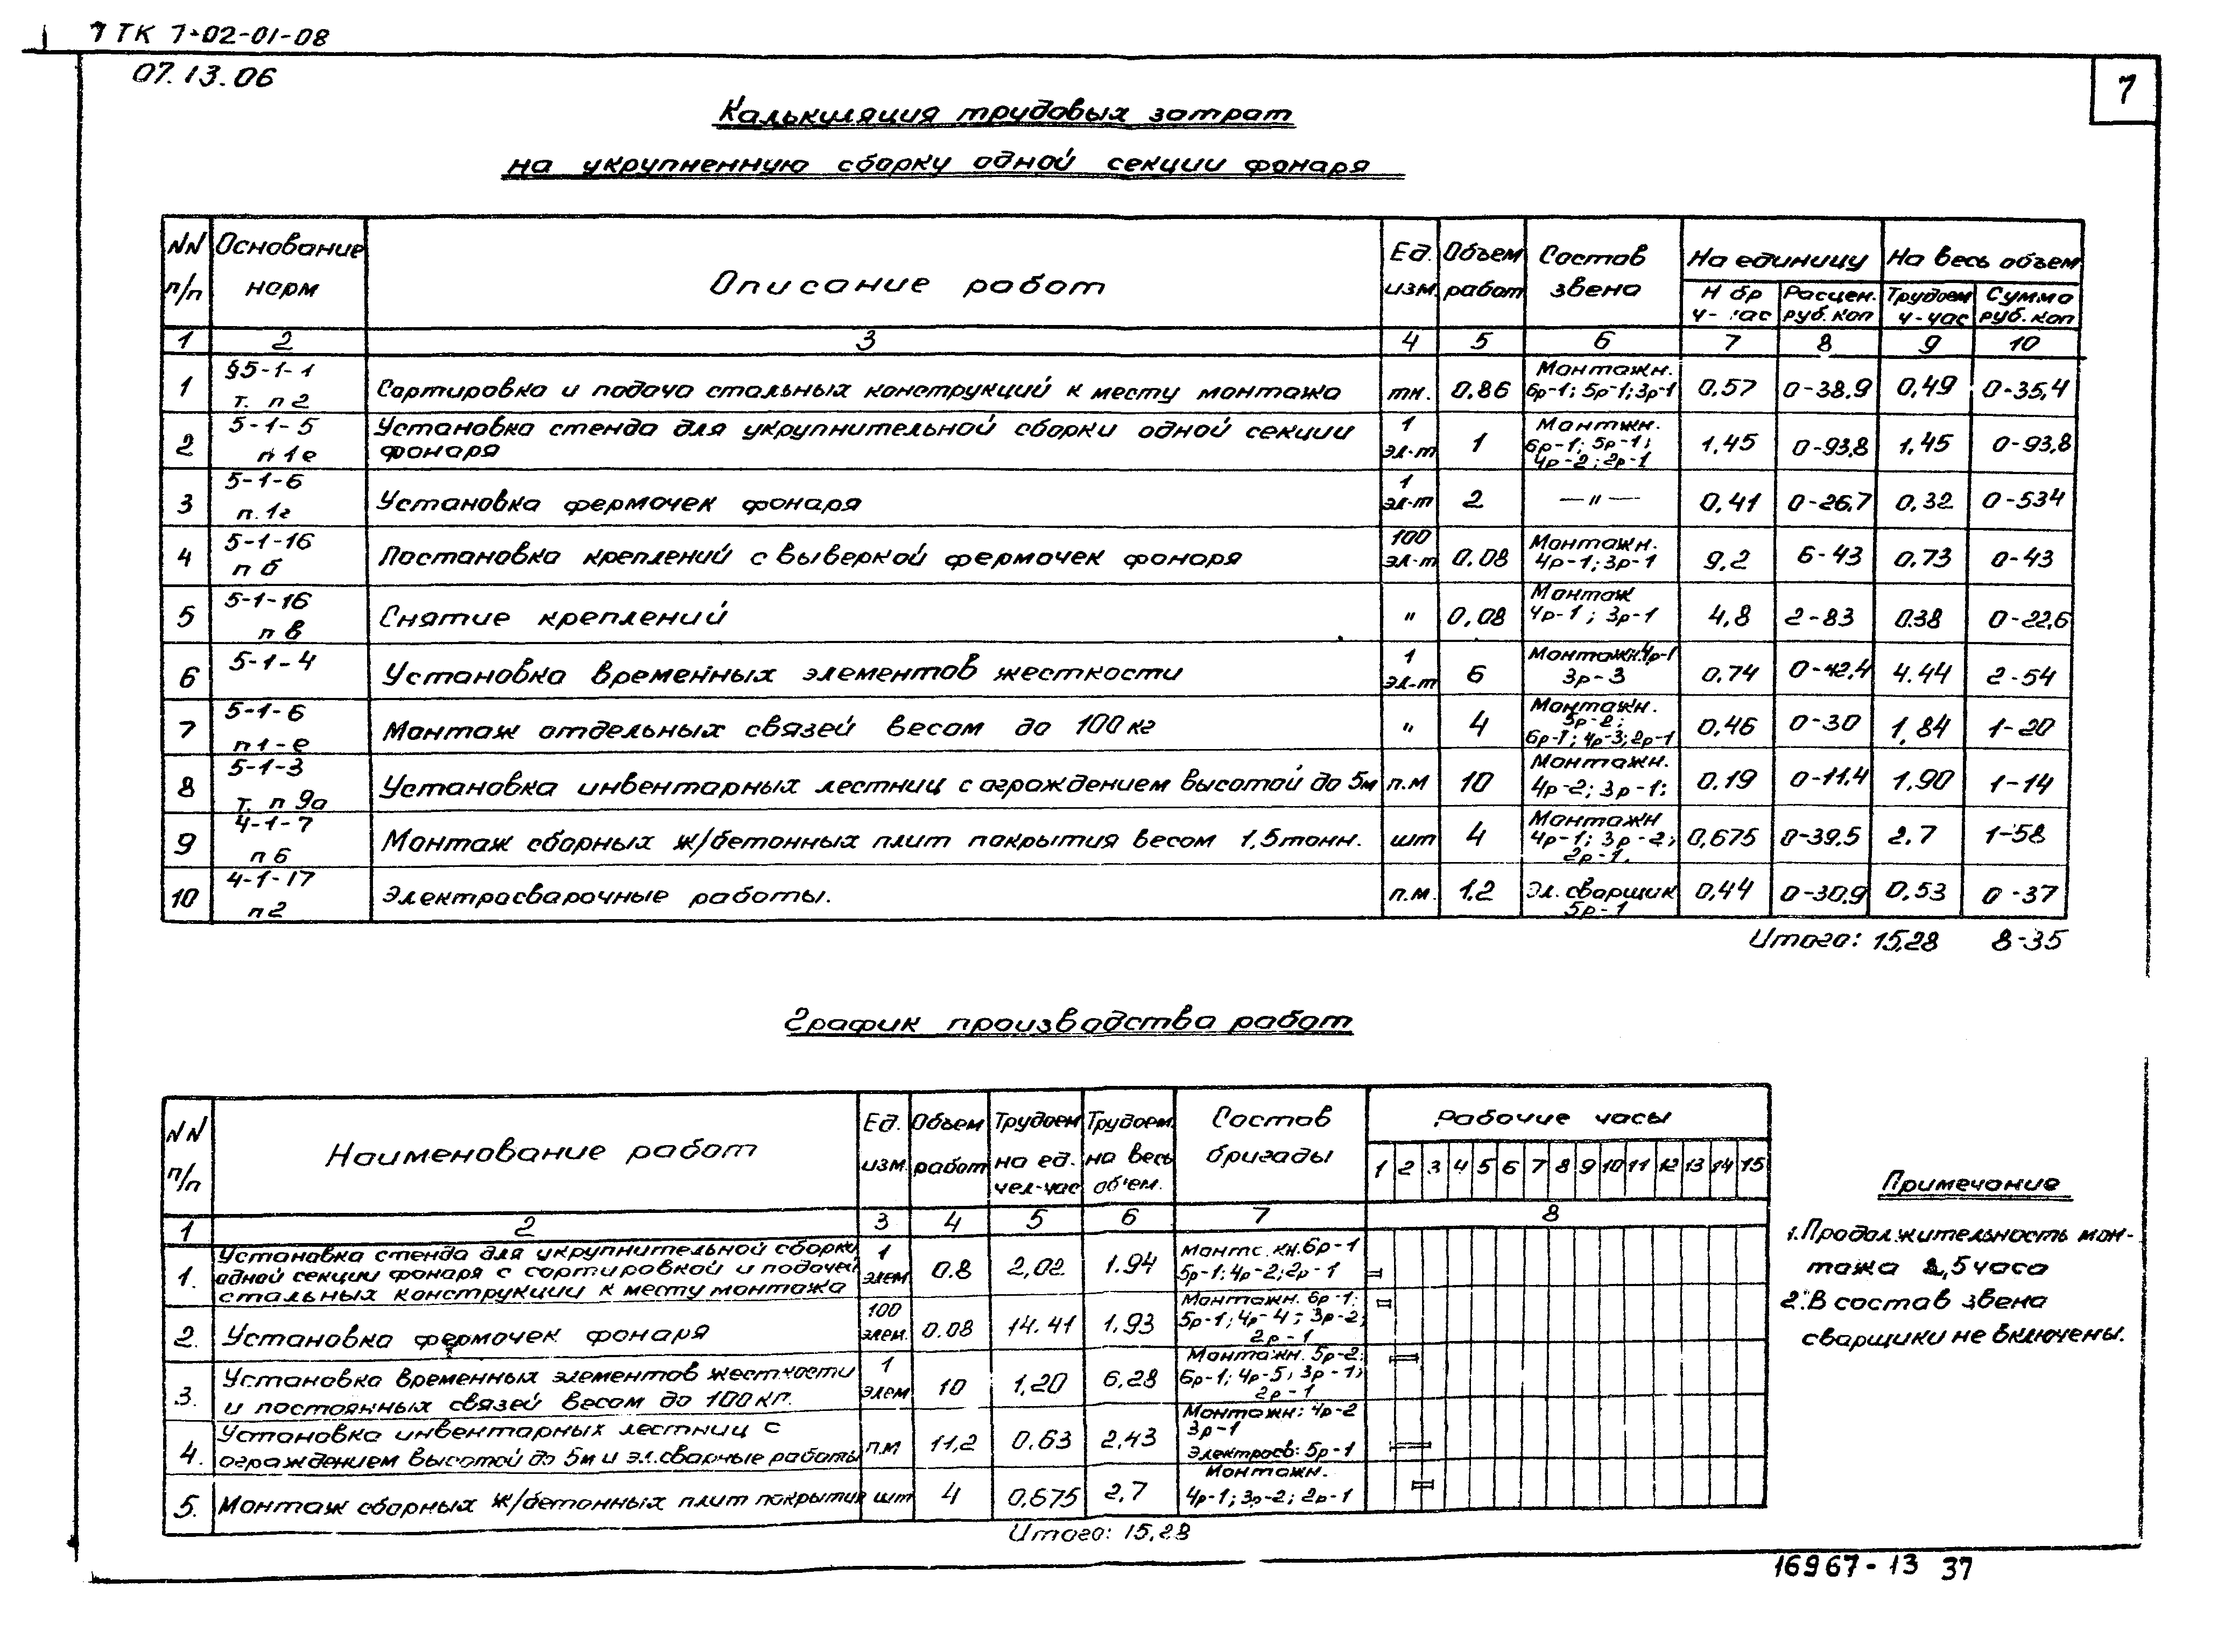 7 ТК 7-02-01-08
07.13.06
7
Калькуляция трудовых затрат
на укрупненную сборку одной секции фонаря
NN п/п | Основание норм | Описание работ | Ед. изм | Объем работ | Состав звена | На единицу | На весь объем
Н бр ч- час | Расцен. руб. коп | Трудоем ч-час | Сумма руб. коп
1 | 2 | 3 | 4 | 5 | 6 | 7 | 8 | 9 | 10
1 | §5-1-1 т. п 2 | Сортировка и подача стальных конструкций к месту монтажа | тн. | 0.86 | Монтажн. 6р-1; 5р-1; 3р-1 | 0.57 | 0-38.9 | 0,49 | 0-35,4
2 | 5-1-5 п 1е | Установка стенда для укрупнительной сборки одной секции фонаря | 1 эл-т | 1 | Монтжн. 6р-1; 5р-1; 4р-2; 2р-1 | 1,45 | 0-93,8 | 1,45 | 0-93,8
3 | 5-1-6 п.1г | Установка фермочек фонаря | 1 эл-т | 2 | —"— | 0,41 | 0-26,7 | 0,32 | 0-534
4 | 5-1-16 п б | Постановка креплений с выверкой фермочек фонаря | 100 эл-т | 0.08 | Монтажн. 4р-1; 3р-1 | 9,2 | 6-43 | 0.73 | 0-43
5 | 5-1-16 п в | Снятие креплений | " | 0,08 | Монтаж 4р-1; 3р-1 | 4,8 | 2-83 | 0.38 | 0-22,6
6 | 5-1-4 | Установка временных элементов жесткости | 1 эл-т | 6 | Монтажн.4р-1 3р-3 | 0.74 | 0-42,4 | 4.44 | 2-54
7 | 5-1-6 п1-е | Монтаж отдельных связей весом до 100 кг | " | 4 | Монтажн. 5р-2; 6р-1; 4р-3; 2р-1 | 0,46 | 0-30 | 1,84 | 1-20
8 | 5-1-3 т. п 9а | Установка инвентарных лестниц с ограждением высотой до 5м | п.м | 10 | Монтажн. 4р-2; 3р-1; | 0.19 | 0-11.4 | 1,90 | 1-14
9 | 4-1-7 п6 | Монтаж сборных ж/бетонных плит покрытия весом 1,5тонн. | шт | 4 | Монтажн 4р-1; 3р-2; 2р-1. | 0,675 | 0-39.5 | 2.7 | 1-58
10 | 4-1-17 п2 | Электросварочные работы. | п.м. | 1.2 | Эл. сварщик 5р-1 | 0,44 | 0-30,9 | 0,53 | 0-37
Итого: 15,28 8-35
График производства работ
NN п/п | Наименование работ | Ед. изм | Объем работ | Трудоем на ед. чел-час | Трудоем. на весь об'ем. | Состав бригады | Рабочие часы
1 2 3 4 5 6 7 8 9 10 11 12 13 14 15
1 | 2 | 3 | 4 | 5 | 6 | 7 | 8
1. | Установка стенда для укрупнительной сборки одной секции фонаря с сортировкой и подачей стальных конструкции к месту монтажа | 1 элем | 0.8 | 2,02 | 1.94 | 6р-1 5р-1; 4р-2; 2р-1
2. | Установка фермочек фонаря | 100 элем. | 0.08 | 14.41 | 1.93 | Монтажн. 6р-1; 5р-1; 4р-4; 3р-2; 2р-1
3. | Установка временных элементов жесткости и постоянных связей весом до 100 кг. | 1 элем | 10 | 1,20 | 6,28 | Монтажн. 5р-2; 6р-1; 4р-5; 3р-1; 2р-1
4. | Установка инвентарных лестниц с ограждением высотой до 5м и эл.сварные работы | п.м | 11,2 | 0.63 | 2,43 | Монтажн: 4р-2 3р-1 Электросв: 5р-1
5. | Монтаж сборных ж/бетонных плит покрытия | шт | 4 | 0,675 | 2,7 | Монтажн. 4р-1; 3р-2; 2р-1
Итого: 15,28
Примечание
1. Продолжительность мон-
тажа 2,5 часа
2. В состав звена
сварщики не включены.
16967-13 37